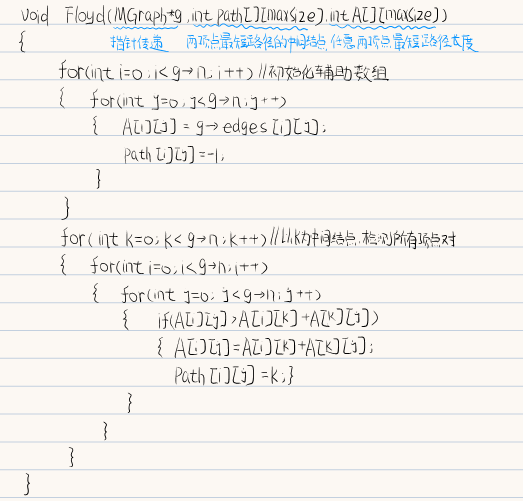 void Floyd(MGraph*g,int path[][maxsize],int A[][maxsize])
{ 指针传递 两顶点最短路径的中间结点 任意两顶点最短路径长度
for(int i=0;i<g→n;i++) //初始化辅助数组
{ for(int j=0;j<g→n;j++)
{ A[i][j] = g→edges[i][j];
Path[i][j]=-1;
}
}
for(int k=0;k<g→n;k++) //以k为中间结点,检测所有顶点对
{ for(int i=0;i<g→n;i++)
{ for(int j=0;j<g→n;j++)
{ if(A[i][j]>A[i][k]+A[k][j])
{ A[i][j]=A[i][k]+A[k][j];
Path[i][j]=k;}
}
}
}
}